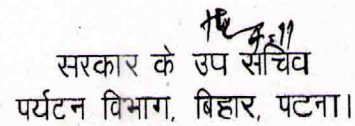 सरकार के उप सचिव
पर्यटन विभाग, बिहार, पटना।